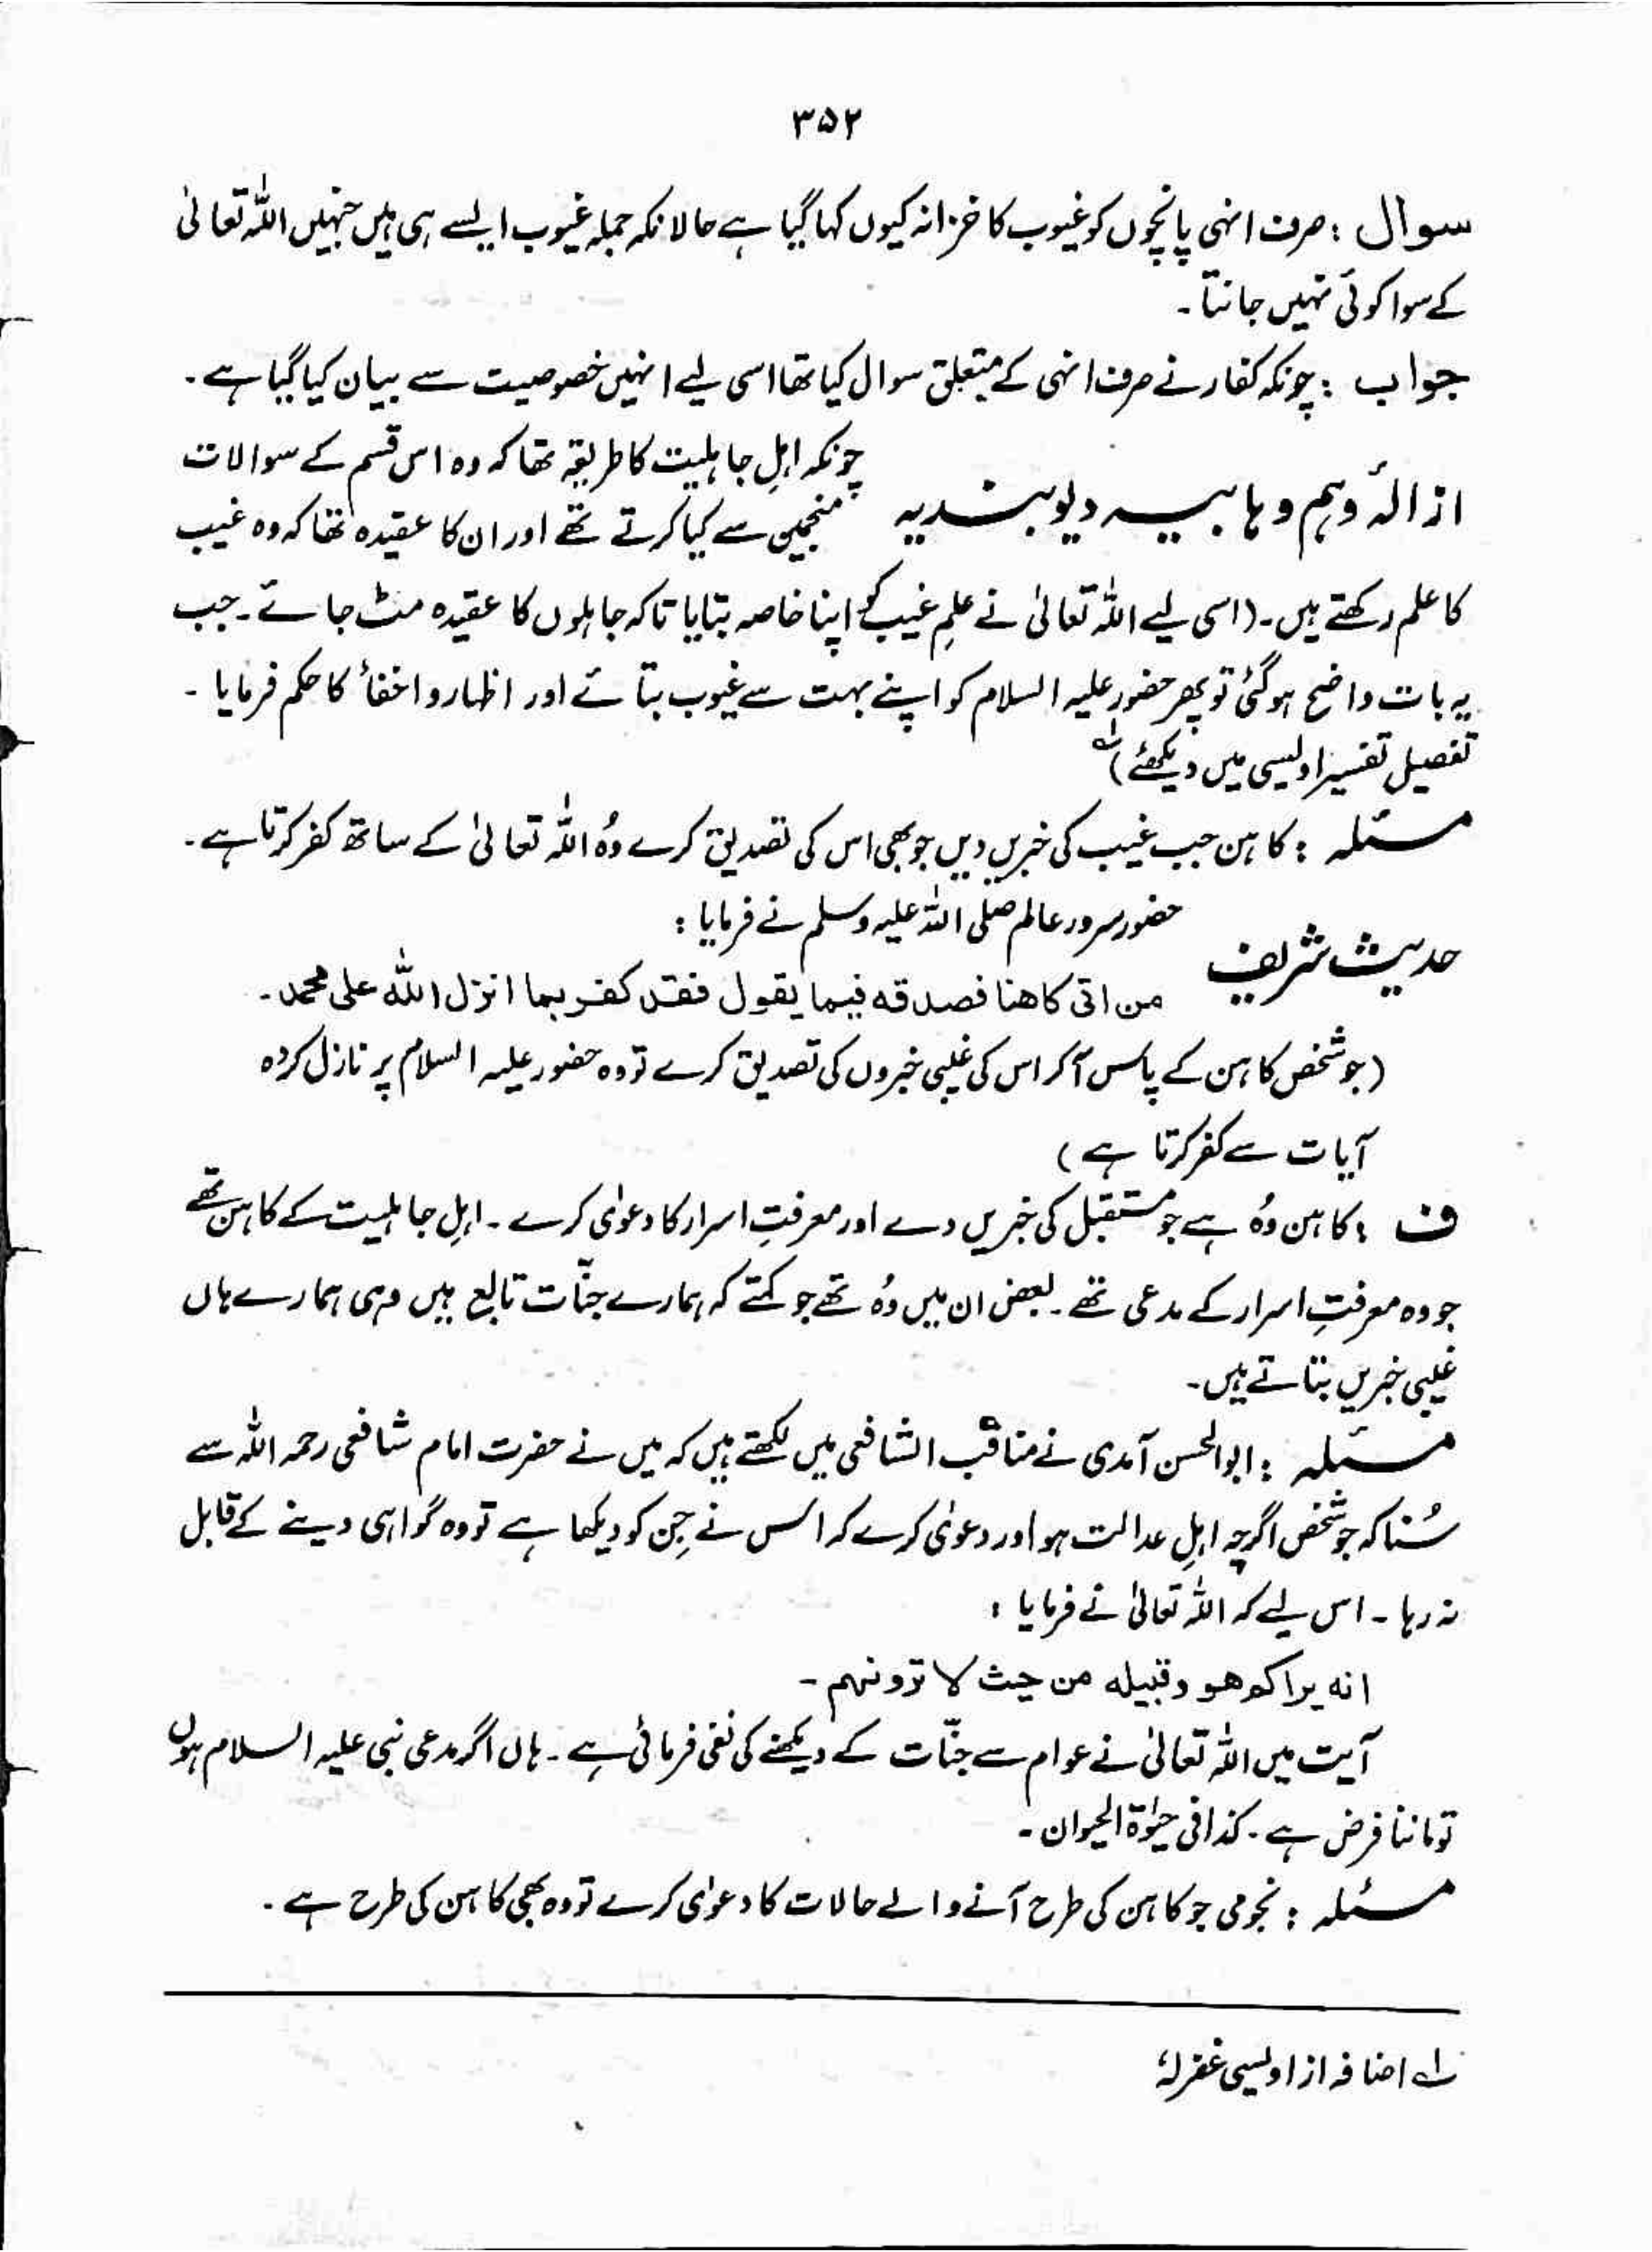 ۳۵۲
سوال : صرف انہی پانچوں کو غیوب کا خزانہ کیوں کہا گیا ہے حالانکہ جملہ غیوب ایسے ہی ہیں جنہیں اللہ تعالیٰ
کے سوا کوئی نہیں جانتا ۔
جواب : چونکہ کفار نے صرف انہی کے متعلق سوال کیا تھا اسی لیے انہیں خصوصیت سے بیان کیا گیا ہے ۔
ازالۂ وہم وہابیہ دیوبندیہ
چونکہ اہلِ جاہلیت کا طریقہ تھا کہ وہ اس قسم کے سوالات
منجمین سے کیا کرتے تھے اور ان کا عقیدہ تھا کہ وہ غیب
کا علم رکھتے ہیں ۔ (اسی لیے اللہ تعالیٰ نے علمِ غیب کو اپنا خاصہ بتایا تاکہ جاہلوں کا عقیدہ مٹ جائے ۔ جب
یہ بات واضح ہو گئی تو پھر حضور علیہ السلام کو اپنے بہت سے غیوب بتائے اور اظہار و اخفأ کا حکم فرمایا ۔
تفصیل تفسیر اویسی میں دیکھئے) لہ
مسئلہ : کاہن جب غیب کی خبریں دیں جو بھی اس کی تصدیق کرے وُہ اللہ تعالیٰ کے ساتھ کفر کرتا ہے ۔
حدیث شریف
حضور سرور عالم صلی اللہ علیہ وسلم نے فرمایا :
من اتی کاھنا فصدقہ فیما یقول فقد کفر بما انزل اللہ علی محمد ۔
(جو شخص کاہن کے پاس آکر اس کی غیبی خبروں کی تصدیق کرے تو وہ حضور علیہ السلام پر نازل کردہ
آیات سے کفر کرتا ہے )
ف : کاہن وُہ ہے جو مستقبل کی خبریں دے اور معرفتِ اسرار کا دعوٰی کرے ۔ اہلِ جاہلیت کے کاہن تھے
جو وہ معرفتِ اسرار کے مدعی تھے ۔ بعض ان میں وُہ تھے جو کہتے کہ ہمارے جنّات تابع ہیں وہی ہمارے ہاں
غیبی خبریں بتاتے ہیں ۔
مسئلہ : ابوالحسن آمدی نے مناقب الشافعی میں لکھتے ہیں کہ میں نے حضرت امام شافعی رحمہ اللہ سے
سُنا کہ جو شخص اگرچہ اہلِ عدالت ہو اور دعوٰی کرے کہ اس نے جِن کو دیکھا ہے تو وہ گواہی دینے کے قابل
نہ رہا ۔ اس لیے کہ اللہ تعالیٰ نے فرمایا :
انہ یراکم ھو وقبیلہ من حیث لا ترونہم ۔
آیت میں اللہ تعالیٰ نے عوام سے جنّات کے دیکھنے کی نفی فرمائی ہے ۔ ہاں اگر مدعی نبی علیہ السلام ہوں
تو ماننا فرض ہے ۔ کذا فی حیٰوۃ الحیوان ۔
مسئلہ : نجومی جو کاہن کی طرح آنے والے حالات کا دعوٰی کرے تو وہ بھی کاہن کی طرح ہے ۔
لہ اضافہ از اویسی غفرلہٗ